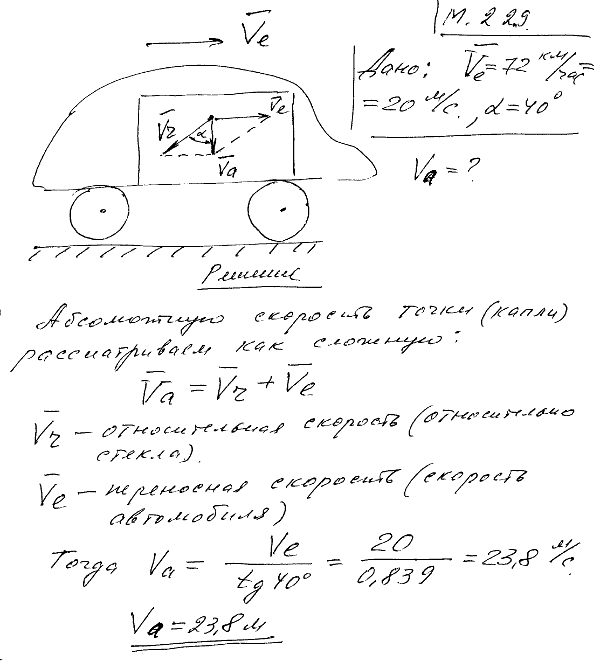 V̅e
М. 2 29.
Дано: V̅e = 72 км/час =
= 20 м/с., α = 40°
Va = ?
V̅r α V̅e
V̅a
Решение
Абсолютную скорость точки (капли)
рассматриваем как сложную:
V̅a = V̅r + V̅e
V̅r – относительная скорость (относительно
стекла).
V̅e – переносная скорость (скорость
автомобиля)
Тогда Va = Ve / tg 40° = 20 / 0,839 = 23,8 м/с.
Va = 23,8 м